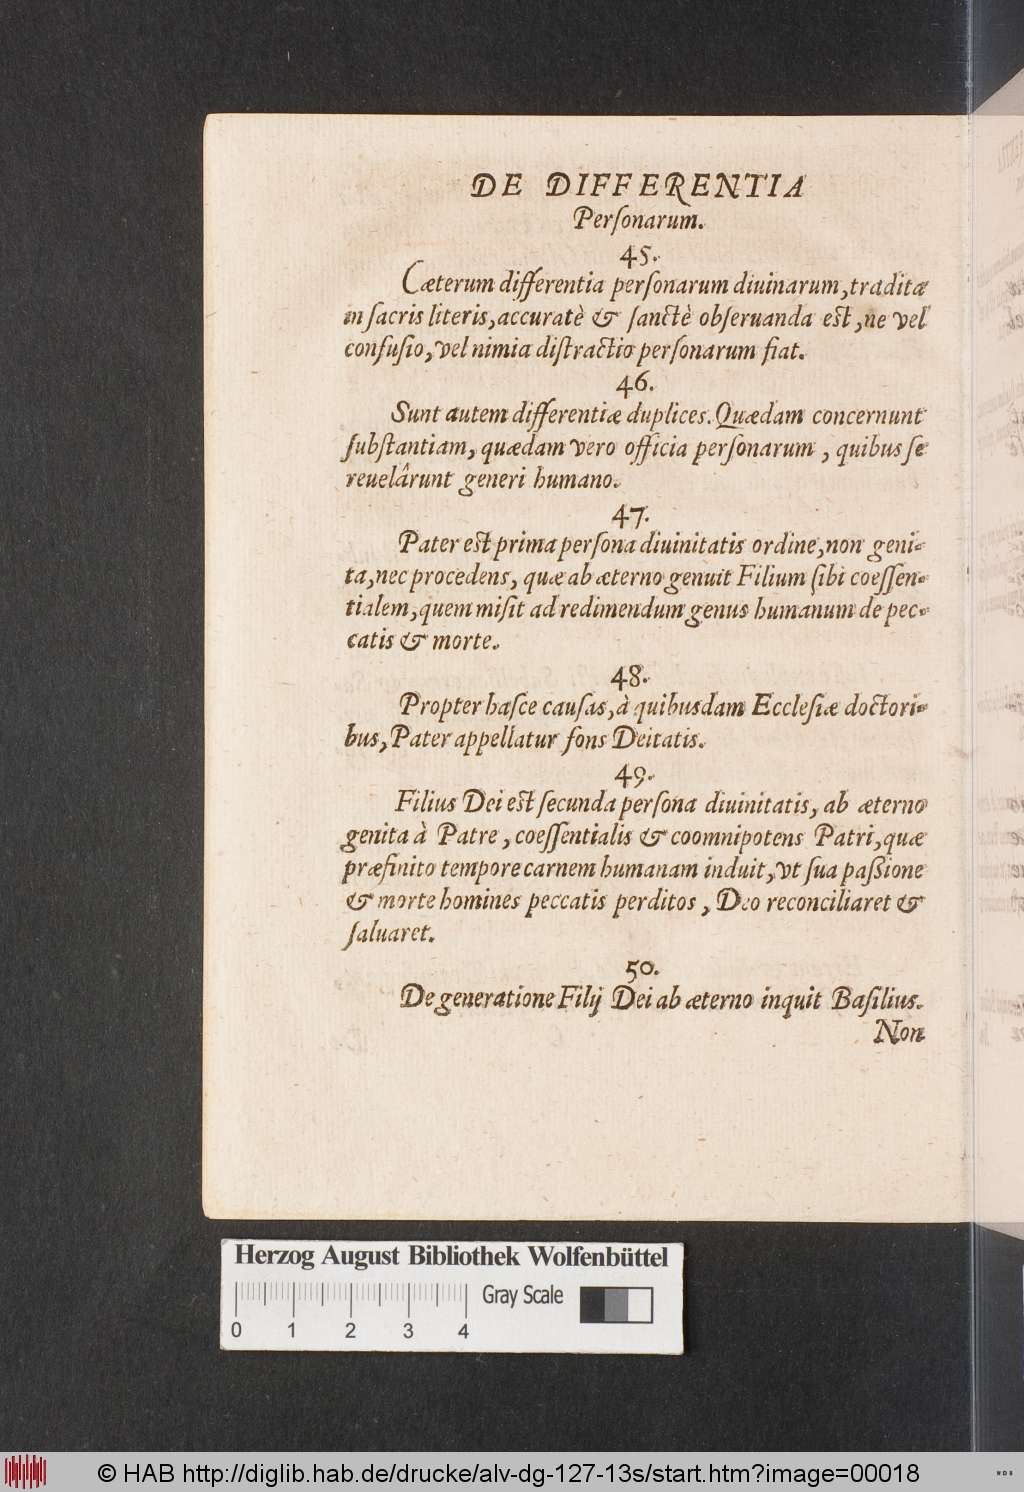 DE DIFFERENTIA
Perſonarum.
45.
Cæterum differentia perſonarum diuinarum, traditæ
in ſacris literis, accuratè & ſanctè obſeruanda est, ne vel
confuſio, vel nimia diſtractio perſonarum fiat.
46.
Sunt autem differentiæ duplices. Quædam concernunt
ſubſtantiam, quædam vero officia perſonarum, quibus ſe
reuelârunt generi humano.
47.
Pater est prima perſona diuinitatis ordine, non geni-
ta, nec procedens, quæ ab æterno genuit Filium ſibi coeſſen-
tialem, quem miſit ad redimendum genus humanum de pec-
catis & morte.
48.
Propter haſce cauſas, à quibusdam Eccleſiæ doctori-
bus, Pater appellatur fons Deitatis.
49.
Filius Dei est ſecunda perſona diuinitatis, ab æterno
genita à Patre, coeſſentialis & coomnipotens Patri, quæ
præfinito tempore carnem humanam induit, vt ſua paſsione
& morte homines peccatis perditos, Deo reconciliaret &
ſaluaret.
50.
De generatione Filij Dei ab æterno inquit Baſilius.
Non
Herzog August Bibliothek Wolfenbüttel
Gray Scale
0 1 2 3 4
© HAB http://diglib.hab.de/drucke/alv-dg-127-13s/start.htm?image=00018